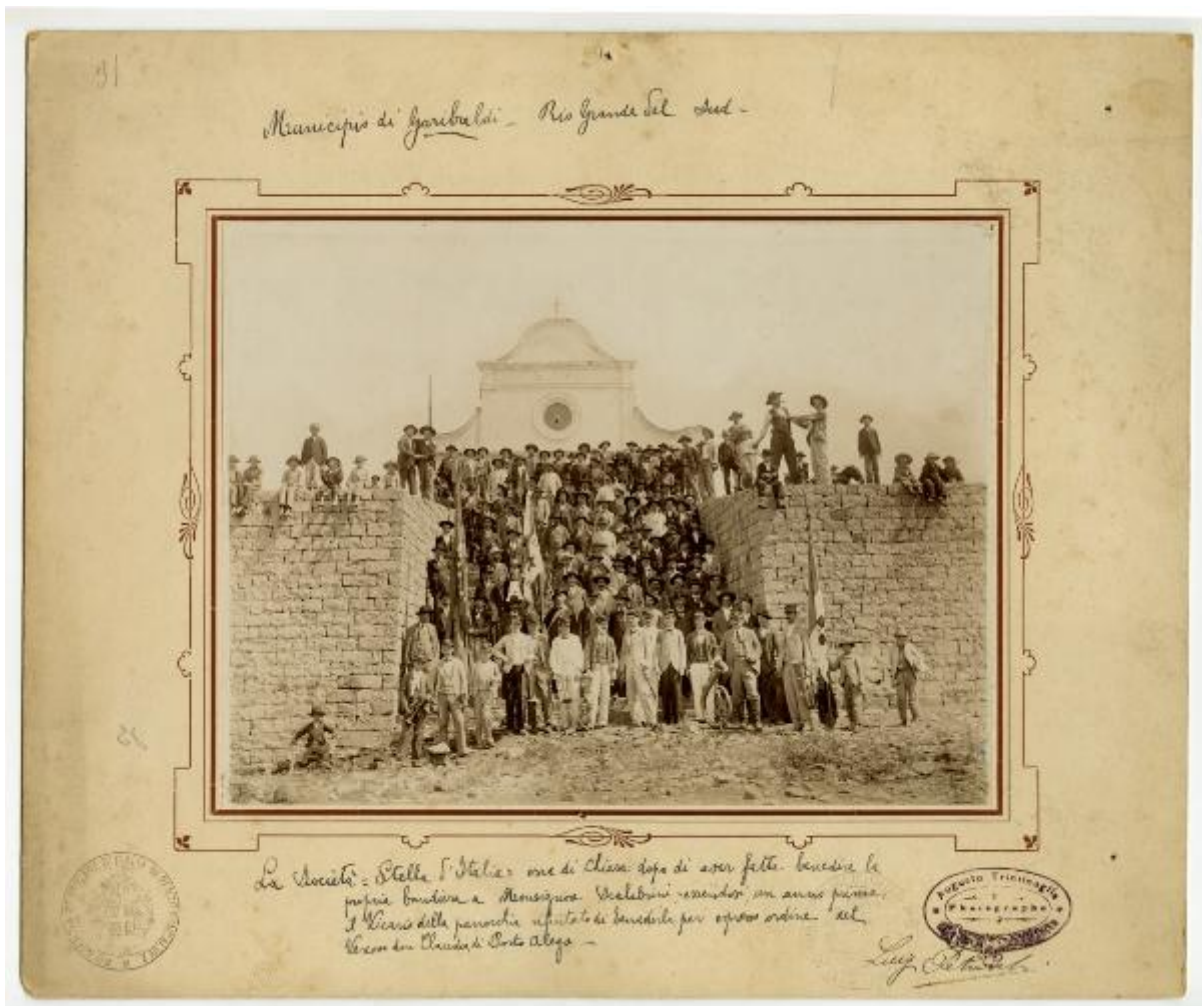 91
Municipio di Garibaldi - Rio Grande del Sud -
La Società = Stella d'Italia = esce di Chiesa dopo di aver fatto benedire la
propria bandiera a Monsignore Scalabrini - essendosi un anno prima,
il Vicario della parrochia rifiutato di benedirla per espresso ordine del
Vescovo don Claudio, di Porto Alegro -
Augusto Trincaglia
Photographo
Luiz